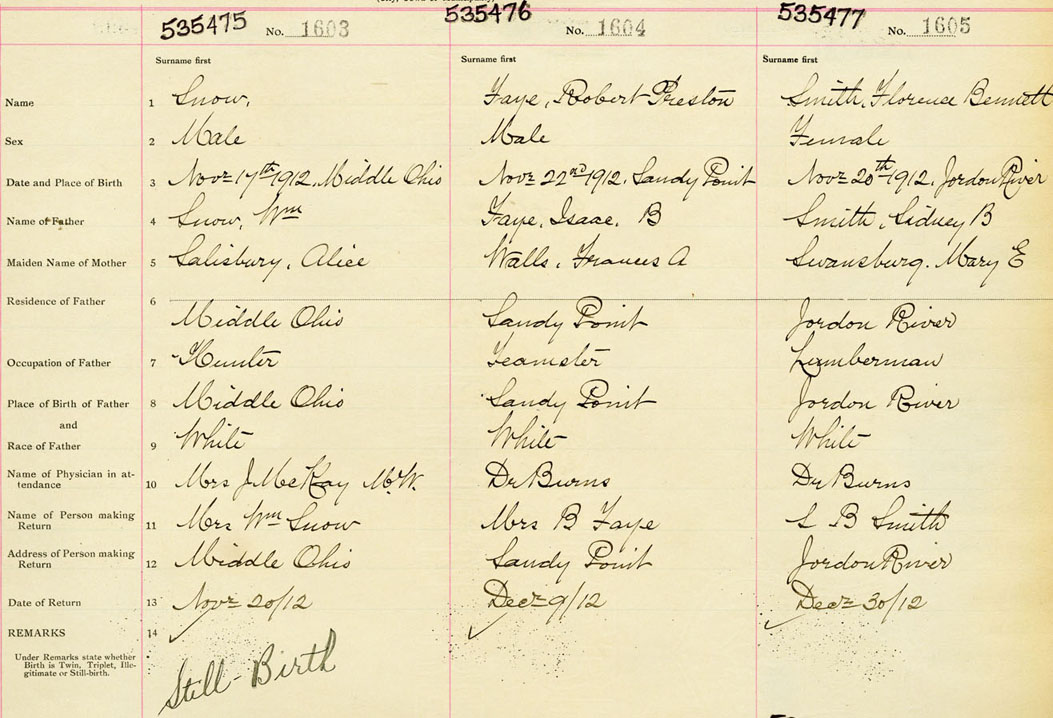 535475 No. 1603 535476 No. 1604 535477 No. 1605
Surname first Surname first Surname first
Name 1 Snow, Faye, Robert Preston Smith, Florence Bennett
Sex 2 Male Male Female
Date and Place of Birth 3 Novr 17th 1912, Middle Ohio Novr 22nd 1912, Sandy Point Novr 20th 1912, Jordon River
Name of Father 4 Snow, Wm Faye, Isaac. B Smith, Sidney B
Maiden Name of Mother 5 Salisbury, Alice Walls, Frances A Swansburg. Mary E
Residence of Father 6
Middle Ohio Sandy Point Jordon River
Occupation of Father 7 Hunter Teamster Lumberman
Place of Birth of Father 8 Middle Ohio Sandy Point Jordon River
and
Race of Father 9 White White White
Name of Physician in at-
tendance 10 Mrs J McKay M.W. Dr Burns Dr Burns
Name of Person making
Return 11 Mrs Wm Snow Mrs B Faye S B Smith
Address of Person making
Return 12 Middle Ohio Sandy Point Jordon River
Date of Return 13 Novr 20/12 Decr 9/12 Decr 30/12
REMARKS 14
Under Remarks state whether
Birth is Twin, Triplet, Ille-
gitimate or Still-birth.
Still-Birth